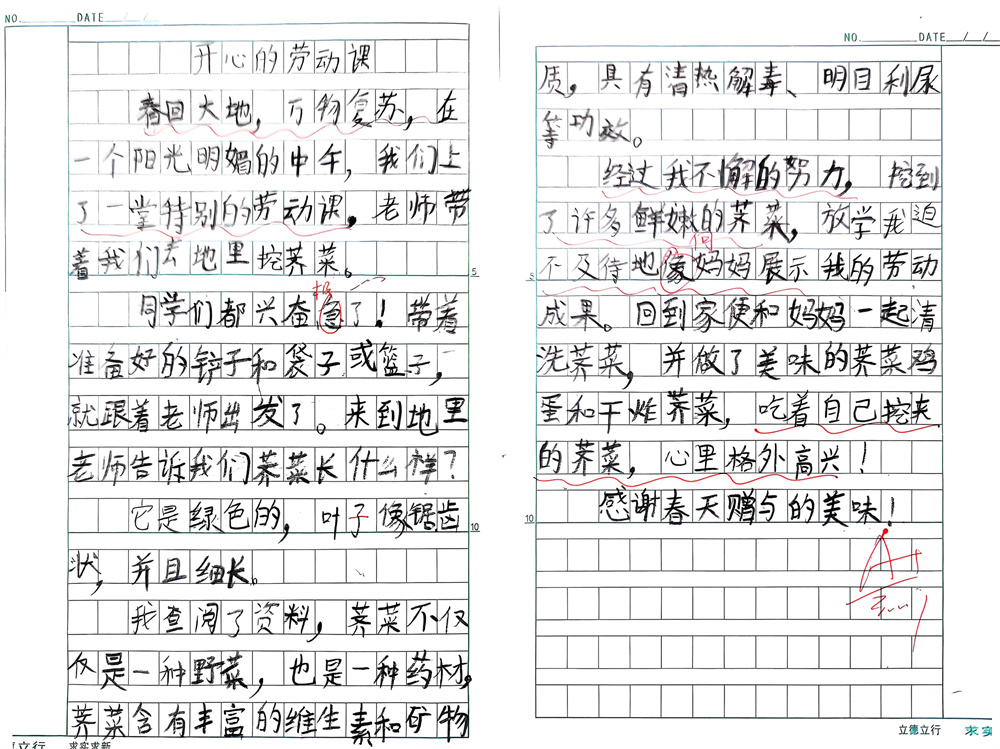 NO. DATE / /
开心的劳动课
春回大地，万物复苏，在
一个阳光明媚的中午，我们上
了一堂特别的劳动课。老师带
着我们去地里挖荠菜。
5
极
同学们都兴奋急了！带着
准备好的铲子和袋子或篮子，
就跟着老师出发了。来到地里
老师告诉我们荠菜长什么样？
它是绿色的，叶子像锯齿
10
状，并且细长。
我查阅了资料，荠菜不仅
仅是一种野菜，也是一种药材，
荠菜含有丰富的维生素和矿物
立行 求实求新
NO. DATE / /
质，具有清热解毒、明目利尿
等功效。
经过我不懈的努力，挖到
了许多鲜嫩的荠菜，放学我迫
向
不及待地像妈妈展示我的劳动
5
成果。回到家便和妈妈一起清
洗荠菜，并做了美味的荠菜鸡
蛋和干炸荠菜，吃着自己挖来
的荠菜，心里格外高兴！
感谢春天赠与的美味！
10
A+
立德立行 求实